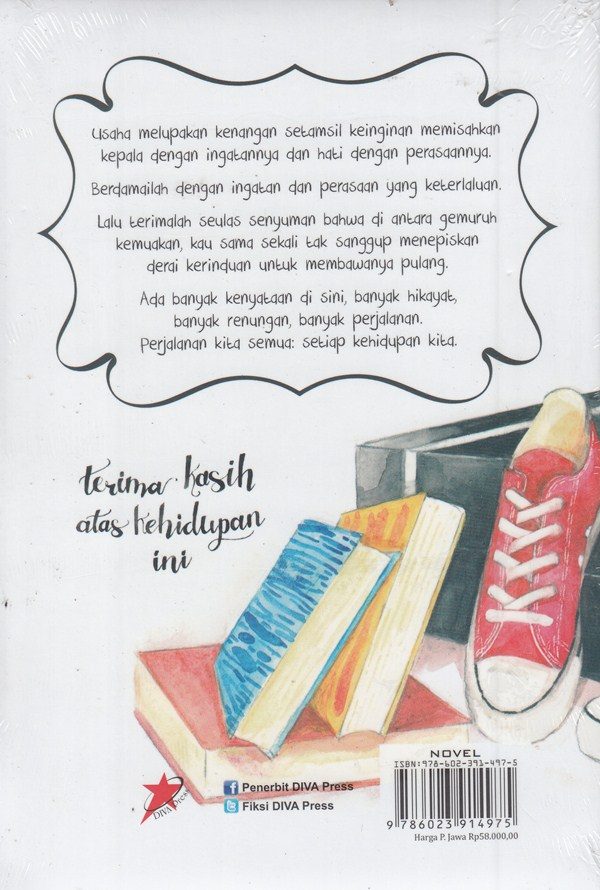 Usaha melupakan kenangan setamsil keinginan memisahkan
kepala dengan ingatannya dan hati dengan perasaannya.
Berdamailah dengan ingatan dan perasaan yang keterlaluan.
Lalu terimalah seulas senyuman bahwa di antara gemuruh
kemuakan, kau sama sekali tak sanggup menepiskan
derai kerinduan untuk membawanya pulang.
Ada banyak kenyataan di sini, banyak hikayat,
banyak renungan, banyak perjalanan.
Perjalanan kita semua: setiap kehidupan kita.
terima kasih
atas kehidupan
ini
DIVA Press
f Penerbit DIVA Press
Fiksi DIVA Press
NOVEL
ISBN: 978-602-391-497-5
9 786023 914975
Harga P. Jawa Rp58.000,00